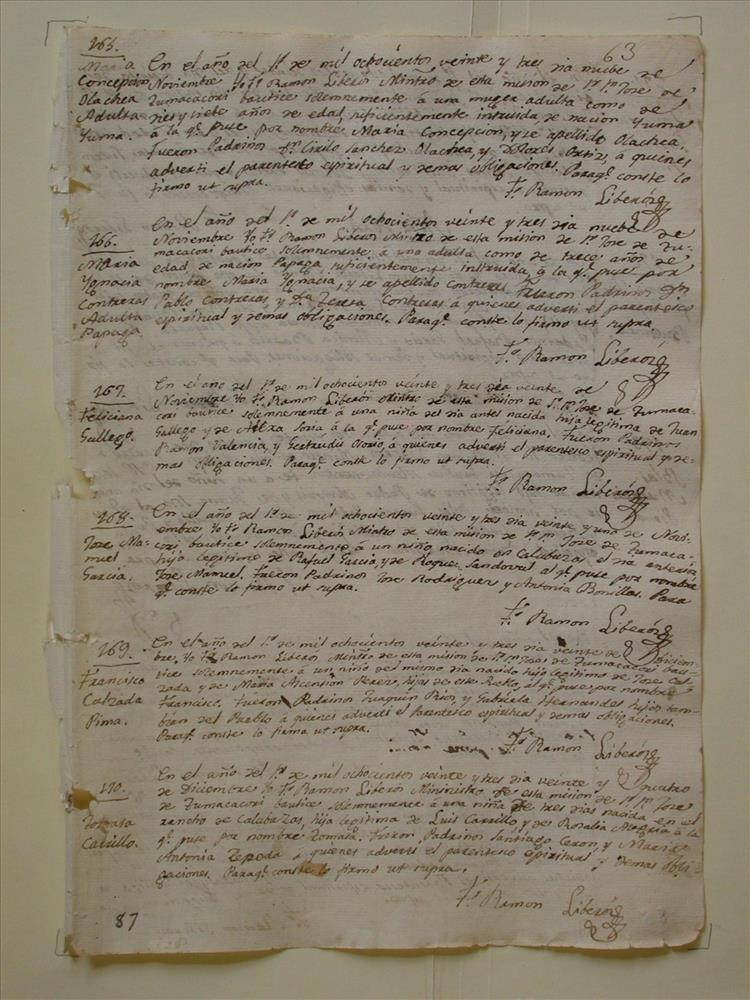 63
165.
Maria
Concepcion
Olachea
Adulta
Yuma.
En el año del Sr. de mil ochocientos veinte y tres dia nuebe de
Noviembre Yo Fr. Ramon Liberós Mintro de esta mision de Sn. Jose de
Tumacacori bautice solemnemente á una muger adulta como de
diez y siete años de edad, suficientemente intruida, de nacion Yuma
á la qe. puse por nombre Maria Concepcion, y se apellidó Olachea.
Fueron Padrinos Dn. Cirilo Sanchez Olachea, y Dolores Ortiz, á quienes
adverti el parentesco espiritual y demas obligaciones. Paraqe. conste lo
firmo ut supra.
Fr. Ramon Liberós
166.
Maria
Ygnacia
Contreras
Adulta
Papaga
En el año del Sr. de mil ochocientos veinte y tres dia nuebe de
Noviembre Yo Fr. Ramon Liberos Mintro de esta mision de Sn. Jose de Tu-
macacori bautice solemnemente á una adulta como de trece años de
edad de nacion Papaga, suficientemente instruida, á la qe. puse por
nombre Maria Ygnacia, y se apellidó Contreras. Fueron Padrinos Dn.
Pablo Contreras, y Da. Teresa Contreras á quienes adverti el parentesco
espiritual y demas obligaciones. Paraqe. conste lo firmo ut supra.
Fr. Ramon Liberós
167.
Feliciana
Gallego.
En el año del Sr. de mil ochocientos veinte y tres dia veinte de
Noviembre Yo Fr. Ramon Liberós Mintro de esta mision de Sn. Jose de Tumaca-
cori bautice solemnemente á una niña del dia antes nacida hija legitima de Juan
Gallego y de Soria á la qe. puse por nombre Feliciana. Fueron Padrinos
Ramon Valencia, y Gertrudis Osorio, á quienes adverti el parentesco espiritual y de-
mas obligaciones. Paraqe. conste lo firmo ut supra.
Fr. Ramon Liberós
168.
Jose Ma-
nuel
Garcia.
En el año del Sr. de mil ochocientos veinte y tres dia veinte y uno de Novi-
embre Yo Fr. Ramon Liberós Mintro de esta mision de Sn. Jose de Tumaca-
cori, bautice solemnemente á un niño nacido en Calabazas el dia anterior
hijo legitimo de Rafael Garcia, y de Roque Sandoval al qe. puse por nombre
Jose Manuel. Fueron Padrinos Jose Rodriguez y Antonia Bonillas. Para
qe. conste lo firmo ut supra.
Fr. Ramon Liberós
169.
Francisco
Calzada
Pima.
En el año del Sr. de mil ochocientos veinte y tres dia veinte de Diciem-
bre, Yo Fr. Ramon Liberos Mintro de esta mision de Sn. Jose de Tumacacori bau-
tice solemnemente á un niño del mismo dia nacido hijo legitimo de Jose Cal-
zada, y de Maria Ascension Perez, hijos de este Pueblo, al qe. puse por nombre
Francisco. Fueron Padrinos Juaquin Rios, y Gabriela Hernandes hijos tam-
bien del Pueblo á quienes adverti el parentesco espiritual y demas obligaciones.
Paraqe. conste lo firmo ut supra.
Fr. Ramon Liberós
170.
Tomasa
Carrillo.
En el año del Sr. de mil ochocientos veinte y tres dia veinte y quatro
de Diciembre Yo Fr. Ramon Liberos Ministro de esta mision de Sn. Jose
de Tumacacori bautice solemnemente á una niña de tres dias nacida en el
rancho de Calabazas, hija legitima de Luis Carrillo y de Rosalia á la
qe. puse por nombre Tomasa. Fueron Padrinos Santiago Ceron, y Maria
Antonia Zepeda á quienes adverti el parentesco espiritual y demas obli-
gaciones. Paraqe. conste lo firmo ut supra.
Fr. Ramon Liberós
87